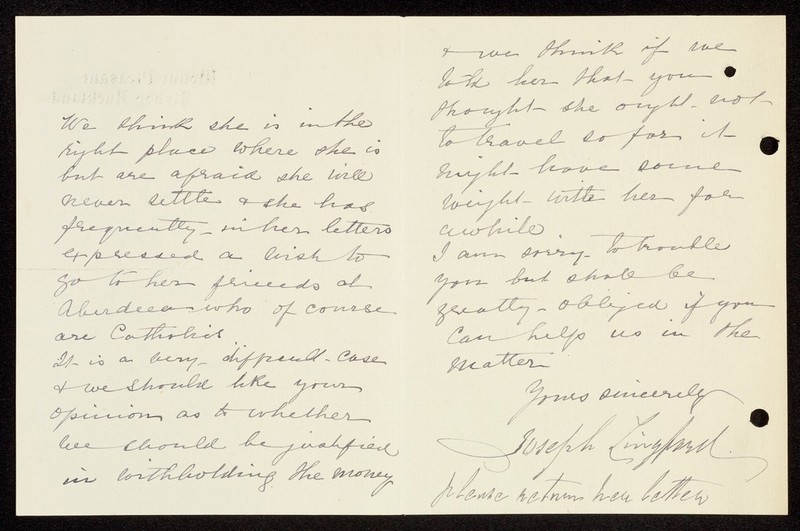 We think she is in the
right place where she is
but are afraid she will
never settle & she has
frequently in her letters
expressed a wish to
go to her friends at
Aberdeen who of course
are Catholics
It is a very difficult case
& we should like your
opinion as to whether
we should be justified
in withholding the money
& we think if we
told her that you
thought she ought not
to travel so far it
might have some
weight with her for
awhile
I am sorry to trouble
you but shall be
greatly obliged if you
can help us in the
matter
Yours sincerely
Joseph Lingford.
please return her letter
Mount Pleasant
Bishop Auckland